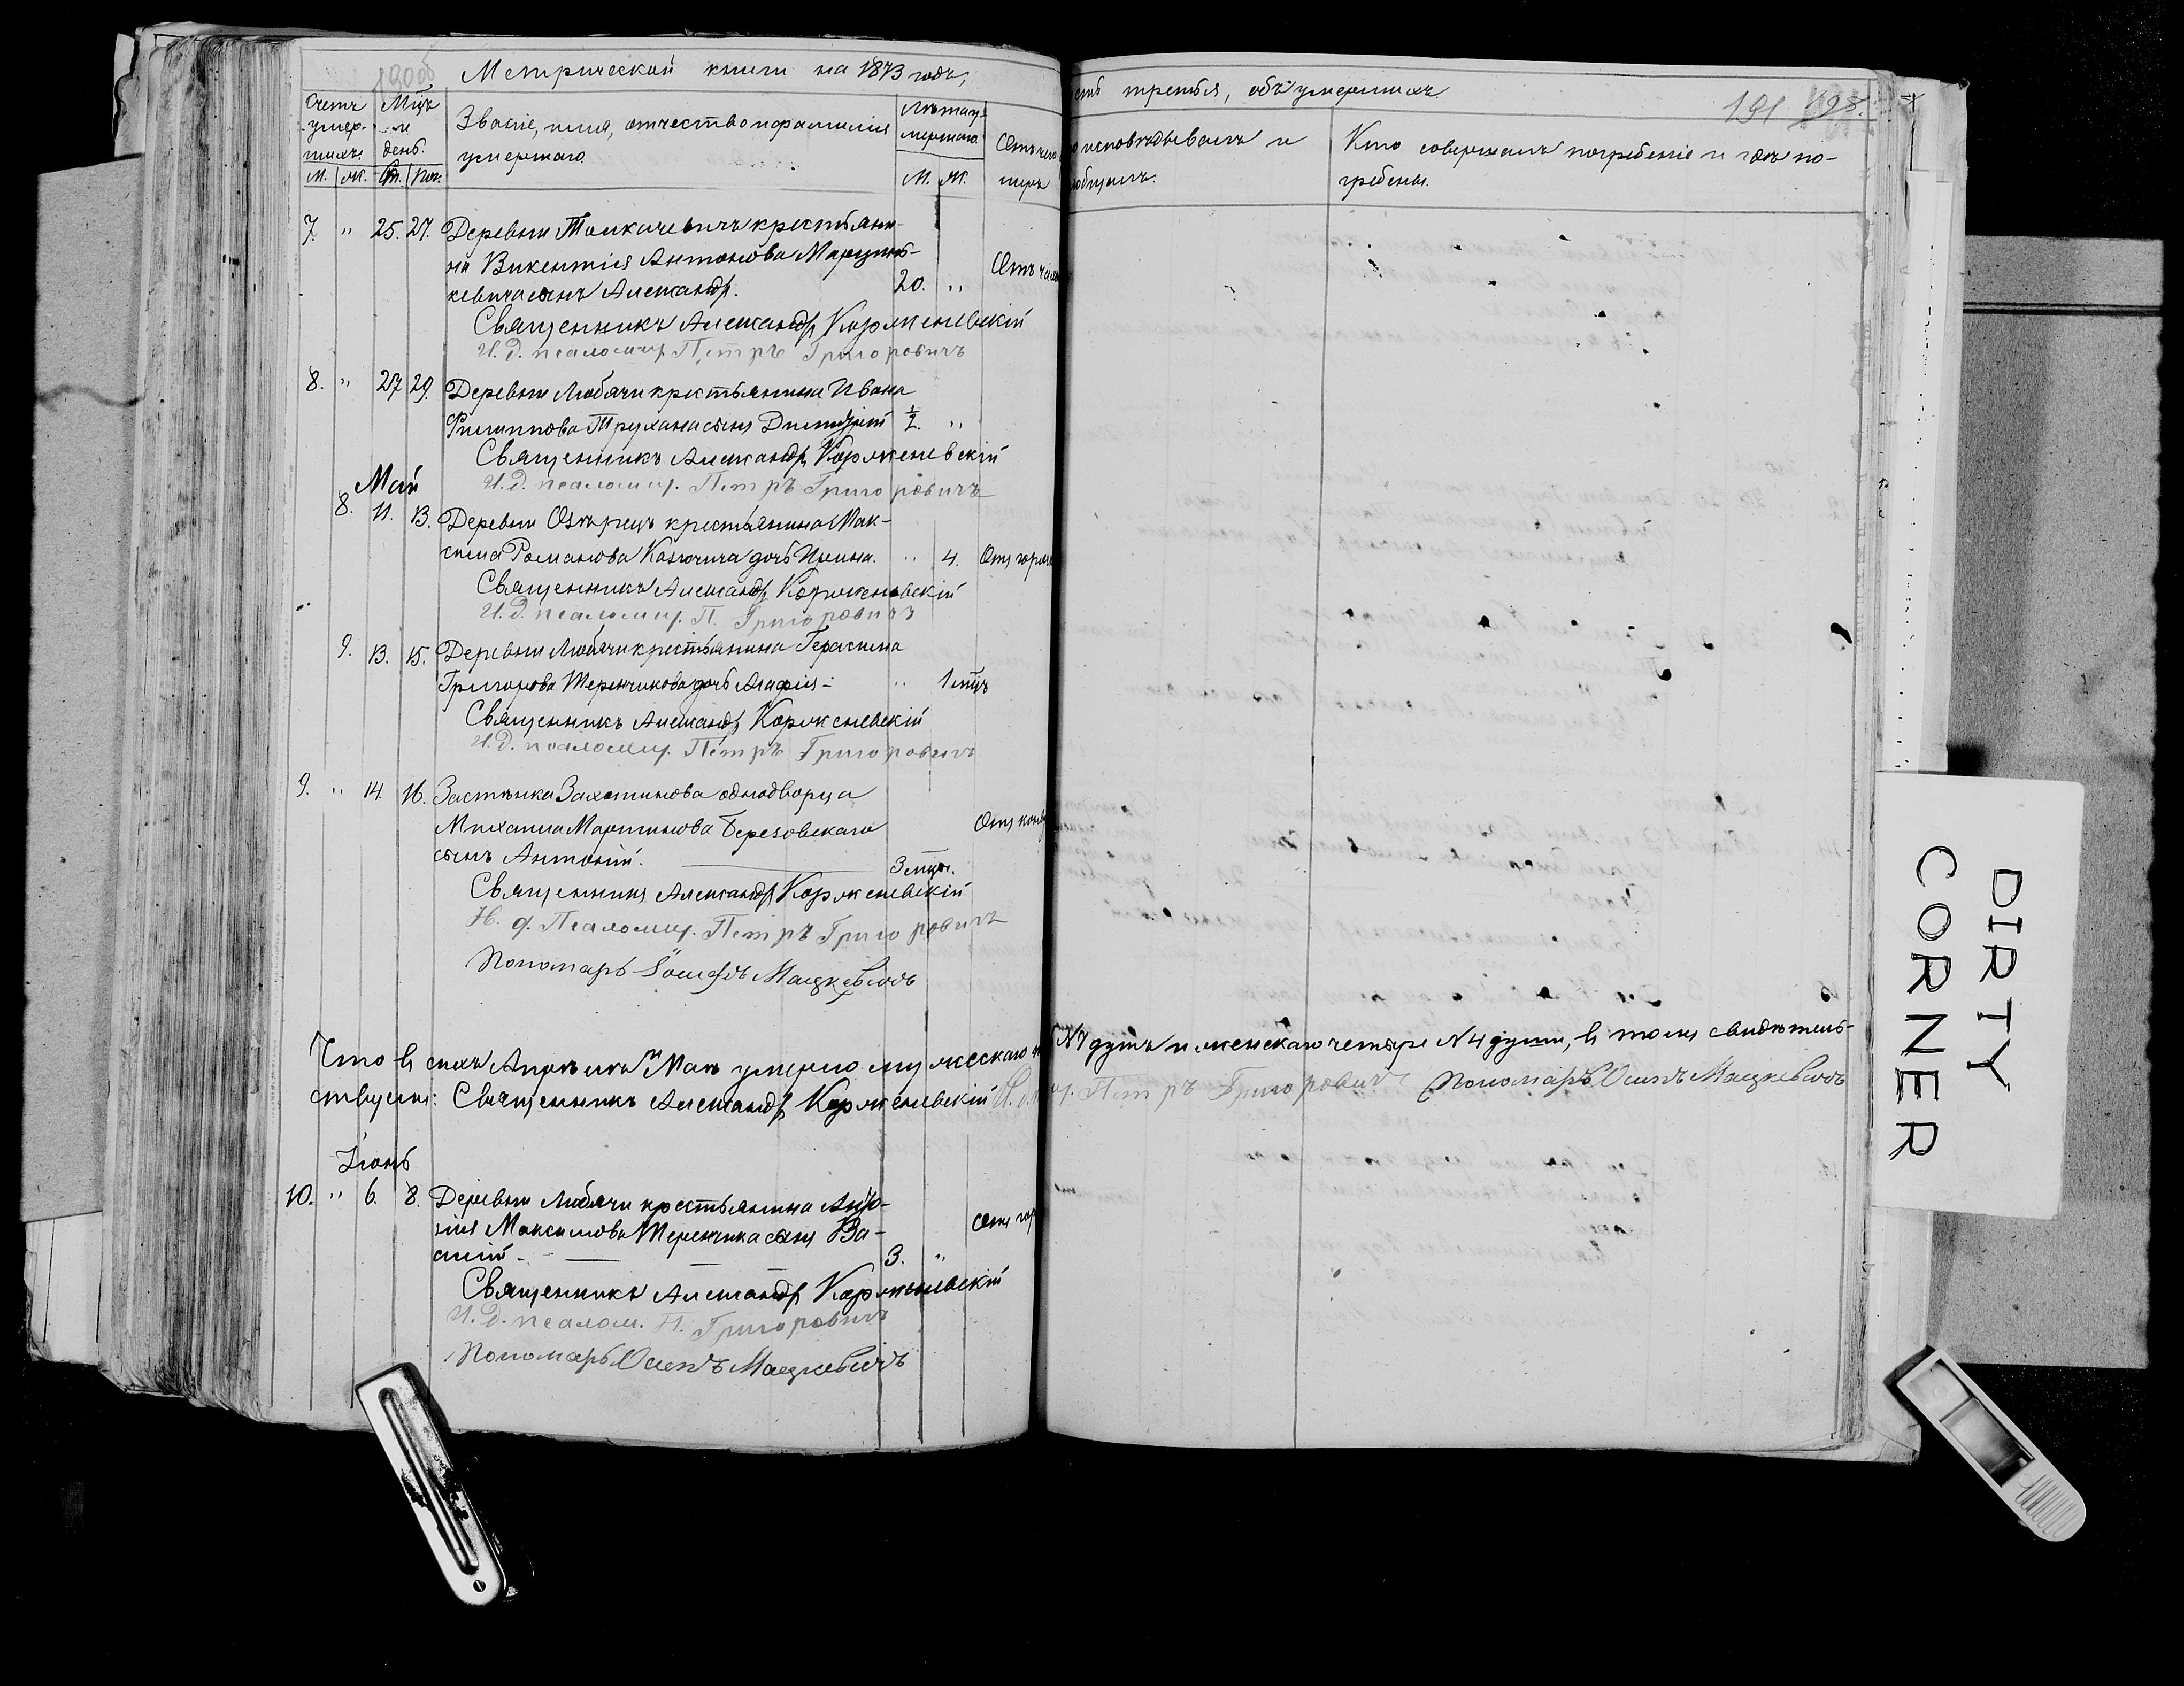 Метрической книги на 1873 годъ,
сть третья, объ умершихъ.
191
Счетъ умер-шихъ. Мцъ и день. Званіе, имя, отчество и фамилія умершаго. Лѣта у-мершаго. Отъ чего
исповѣдывалъ и
Кто совершалъ погребеніе и гдѣ по-
гребены.
М. Ж. См. Пог. М. Ж.
7. " 25. 27. Деревни Толкачевичъ крестьяни-
на Викентія Антонова Марцин-
кевича сынъ Александр. 20. "
Священникъ Александр Корженевскій
И. д. псаломщ. Петръ Григоровичъ
8. " 27 29. Деревни Любячи крестьянина Ивана
Филиппова Трухана сынъ Димитрій ½. "
Священникъ Александр Корженевскій
И. д. псаломщ. Петръ Григоровичъ
Май
8. 11. 13. Деревни Озерецъ крестьянина Мак-
сима Романова Козючица дочь . " 4. Отъ горяч
Священникъ Александр Корженевскій
И. д. псаломщ. П. Григоровичъ
9. 13. 15. Деревни Любячи крестьянина Герасима
Григорова Теренчикова дочь Агафія - " 1 мцъ
Священникъ Александр Корженевскій
И. д. псаломщ. Петръ Григоровичъ
9. " 14. 16. Застѣнка однодворца
Михаила Мартинова Березовскаго
сынъ Антоній. 3 мцы.
Священникъ Александр Корженевскій
И. д. Псаломщ. Петръ Григоровичъ
Пономарь Іосифъ Мацкевичъ
Что въ сихъ Апрѣлѣ и Маѣ умерло мужескаго
№ 7 душъ и женскаго четыре № 4 души, въ томъ свидѣтель-
ствуемъ: Священникъ Александр Корженевскій И. д.
Петръ Григоровичъ Пономарь Осипъ Мацкевичъ
Іюнь
10. " 6. 8. Деревни Любячи крестьянина Анто-
нія Максимова Теренчика сынъ Ва-
силій - 3. " Отъ гор
Священникъ Александр Корженевскій
И. д. псалом. П. Григоровичъ
Пономарь Осипъ Мацкевичъ
DIRTY
CORNER